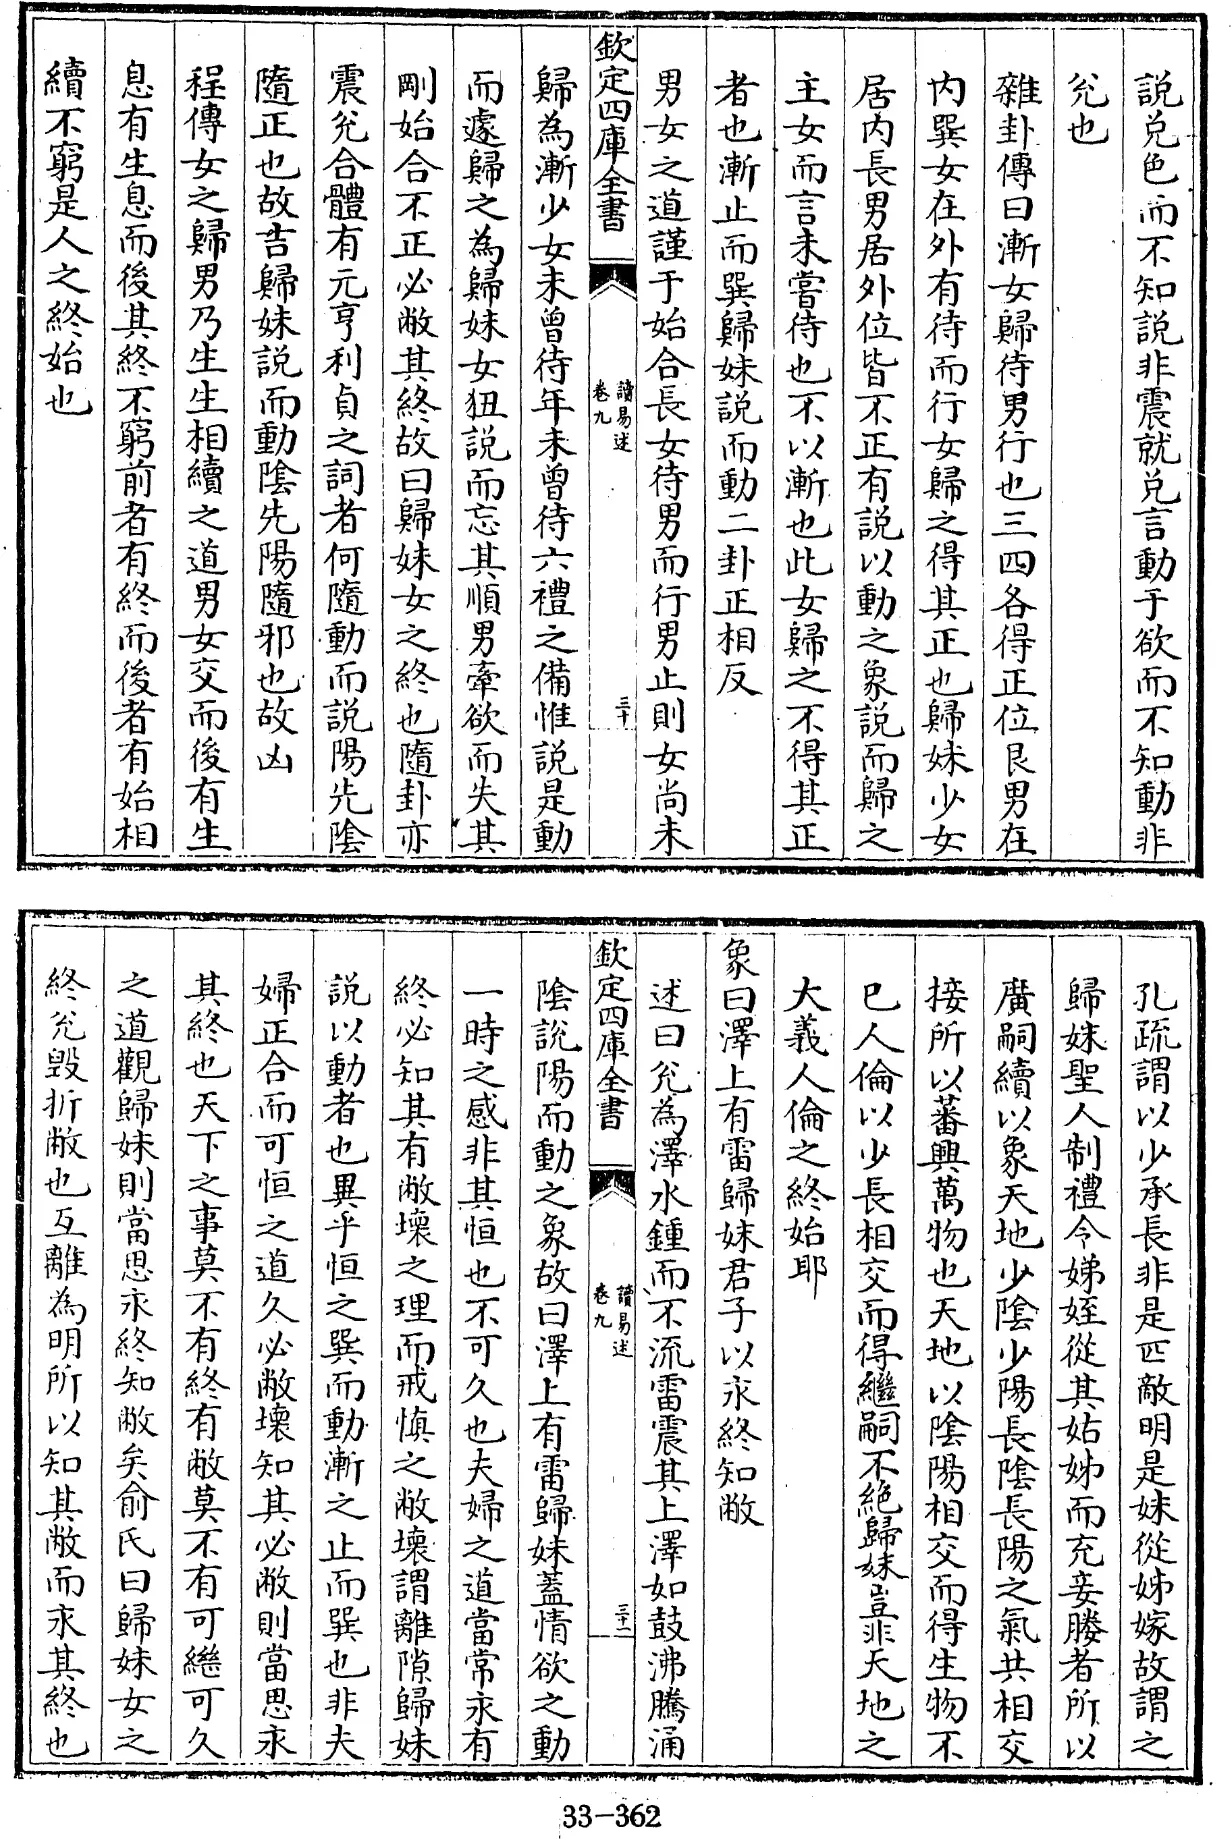 說兑色而不知說非震就兑言動于欲而不知動非
兊也
雜卦傳曰漸女歸待男行也三四各得正位艮男在
内巽女在外有待而行女歸之得其正也歸妹少女
居内長男居外位皆不正有説以動之象説而歸之
主女而言未嘗待也不以漸也此女歸之不得其正
者也漸止而巽歸妹説而動二卦正相反
男女之道謹于始合長女待男而行男止則女尚未
欽定四庫全書
讀易述
卷九
三十
歸為漸少女未曾待年未曾待六禮之備惟説是動
而遽歸之為歸妹女狃説而忘其順男牽欲而失其
剛始合不正必敝其終故曰歸妹女之終也隨卦亦
震兊合體有元亨利貞之詞者何隨動而説陽先陰
隨正也故吉歸妹説而動陰先陽隨邪也故凶
程傳女之歸男乃生生相續之道男女交而後有生
息有生息而後其終不窮前者有終而後者有始相
續不窮是人之終始也
孔疏謂以少承長非是匹敵明是妹從姊嫁故謂之
歸妹聖人制禮令娣姪從其姑姊而充妾媵者所以
廣嗣續以象天地少陰少陽長陰長陽之氣共相交
接所以蕃興萬物也天地以陰陽相交而得生物不
巳人倫以少長相交而得繼嗣不絶歸妹豈非天地之
大義人倫之終始耶
象曰澤上有雷歸妹君子以永終知敝
述曰兊為澤水鍾而不流雷震其上澤如鼓沸騰涌
欽定四庫全書
讀易述
卷九
三十一
陰説陽而動之象故曰澤上有雷歸妹蓋情欲之動
一時之感非其恒也不可久也夫婦之道當常永有
終必知其有敝壞之理而戒慎之敝壞謂離隙歸妹
説以動者也異乎恒之巽而動漸之止而巽也非夫
婦正合而可恒之道久必敝壞知其必敝則當思永
其終也天下之事莫不有終有敝莫不有可繼可久
之道觀歸妹則當思永終知敝矣俞氏曰歸妹女之
終兊毀折敝也互離為明所以知其敝而永其終也
33-362